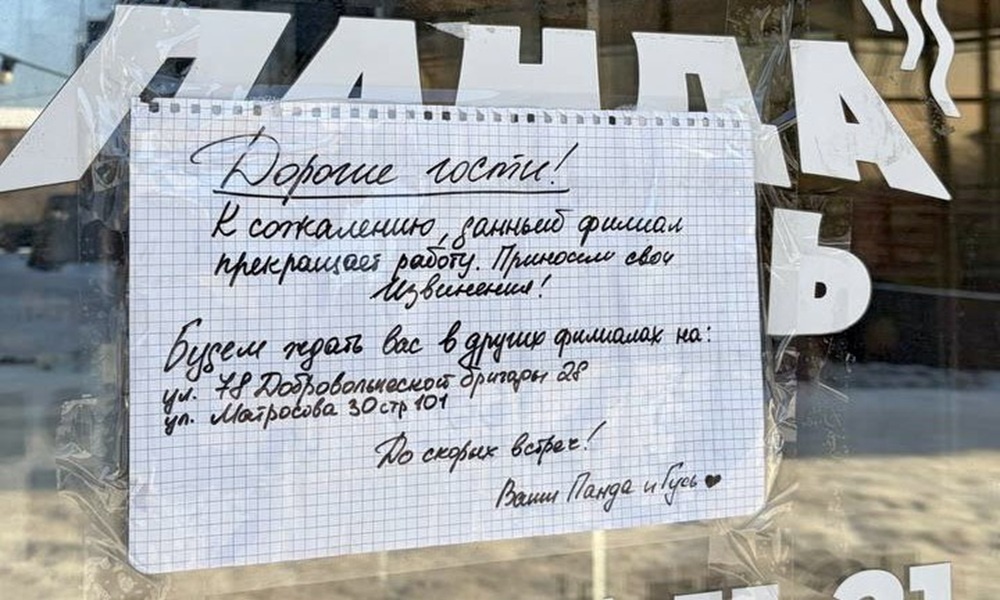 ПАНДА
Ь
Дорогие гости!
К сожалению, данный филиал
прекращает работу. Приносим свои
Извинения!
Будем ждать вас в других филиалах на:
ул. 78 Добровольческой бригады 28
ул. Матросова 30 стр 101
До скорых встреч!
Ваши Панда и Гусь
21